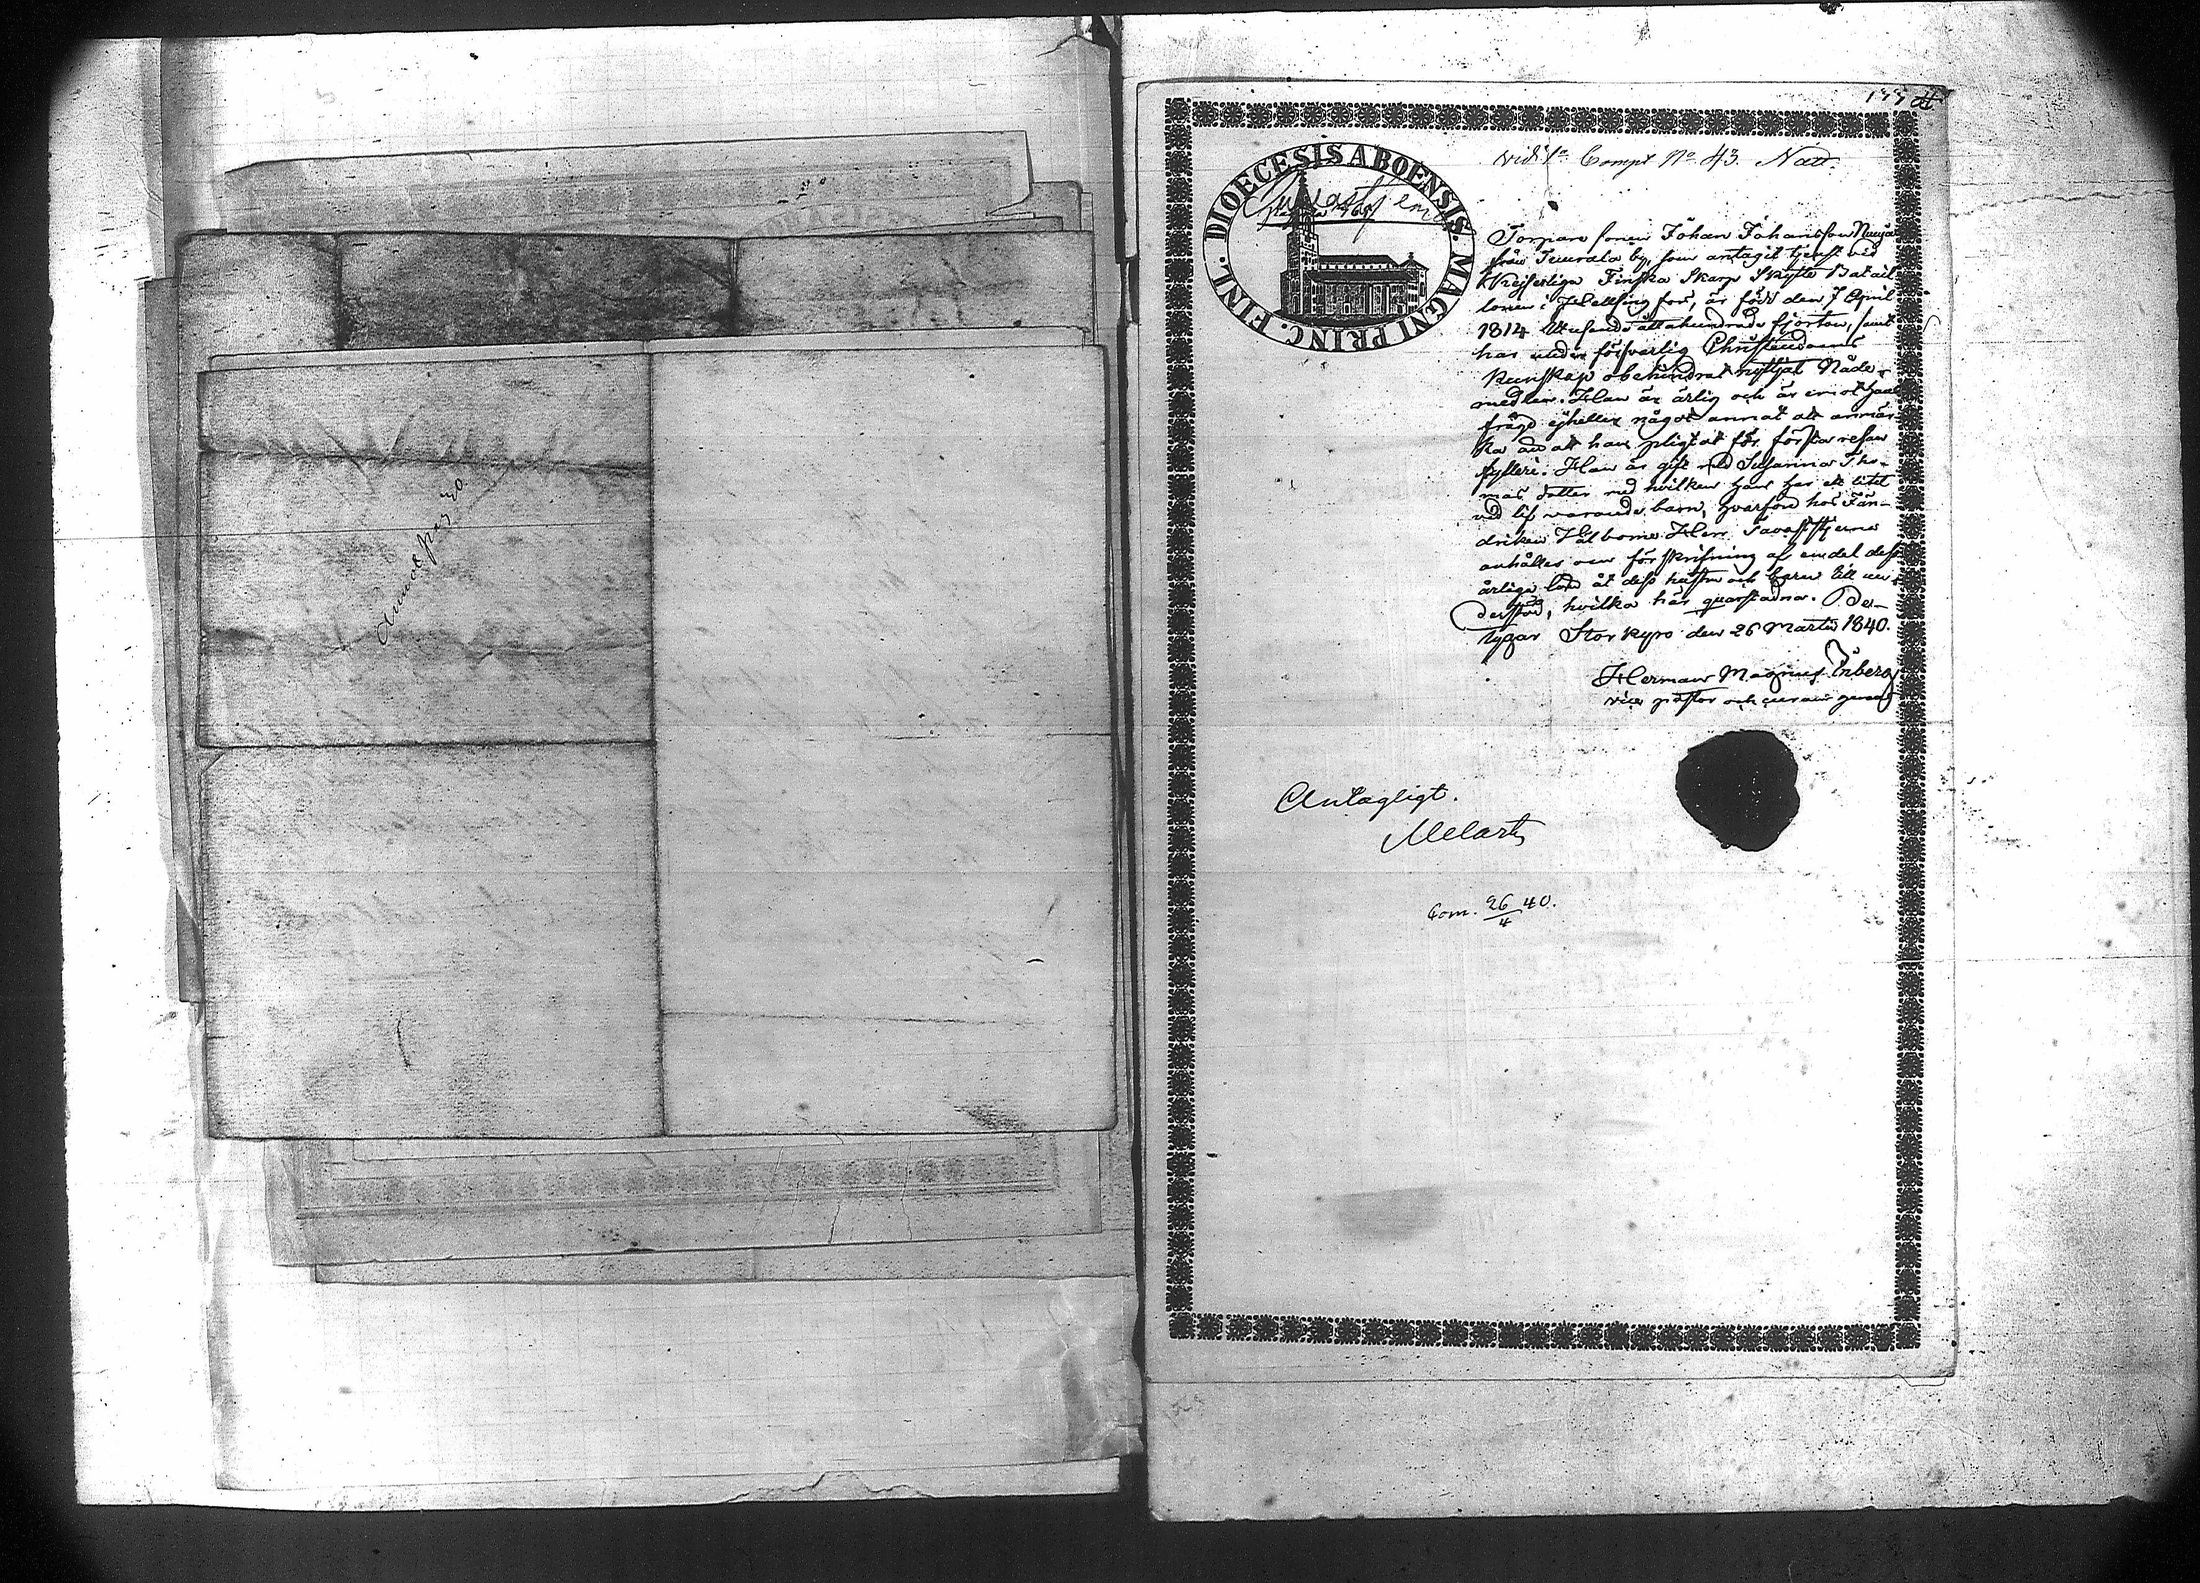 DIOECESIS ABOENSIS. MAGNI PRINC. FINL.
vid 1a Compt No 43
Torpare sonen Johan Johansson
från Teurala by, som antagit tjenst vid
Kejserliga Finska Skarp Skytte Batail-
lonen i Hellsingfors, är född den 7 April
1814 Ettusende åttahundrade fjorton, samt
har under försvarlig Christendoms
kunskap obehindrat nyttjat Nåde-
medlen. Han är ärlig och är emot hans
frägd ejheller något annat att anmär-
ka än att han pligtat för första resan
fylleri. Han är gift med Susanna Tho-
mas dotter med hvilken han har ett litet
vid lif varande barn, hvarföre hos Fän-
driken Välborne Herr Tavaststjerna
anhålles om förskrifning af en del dess
årliga lön åt dess hustru och barn till un-
derstöd, hvilka här quarstadna. Be-
tygar Stor Kyro den 26 Martii 1840.
Herman Magnus Enberg
vice pastor och
Antagligt.
Melart
Com. 26/4 40.